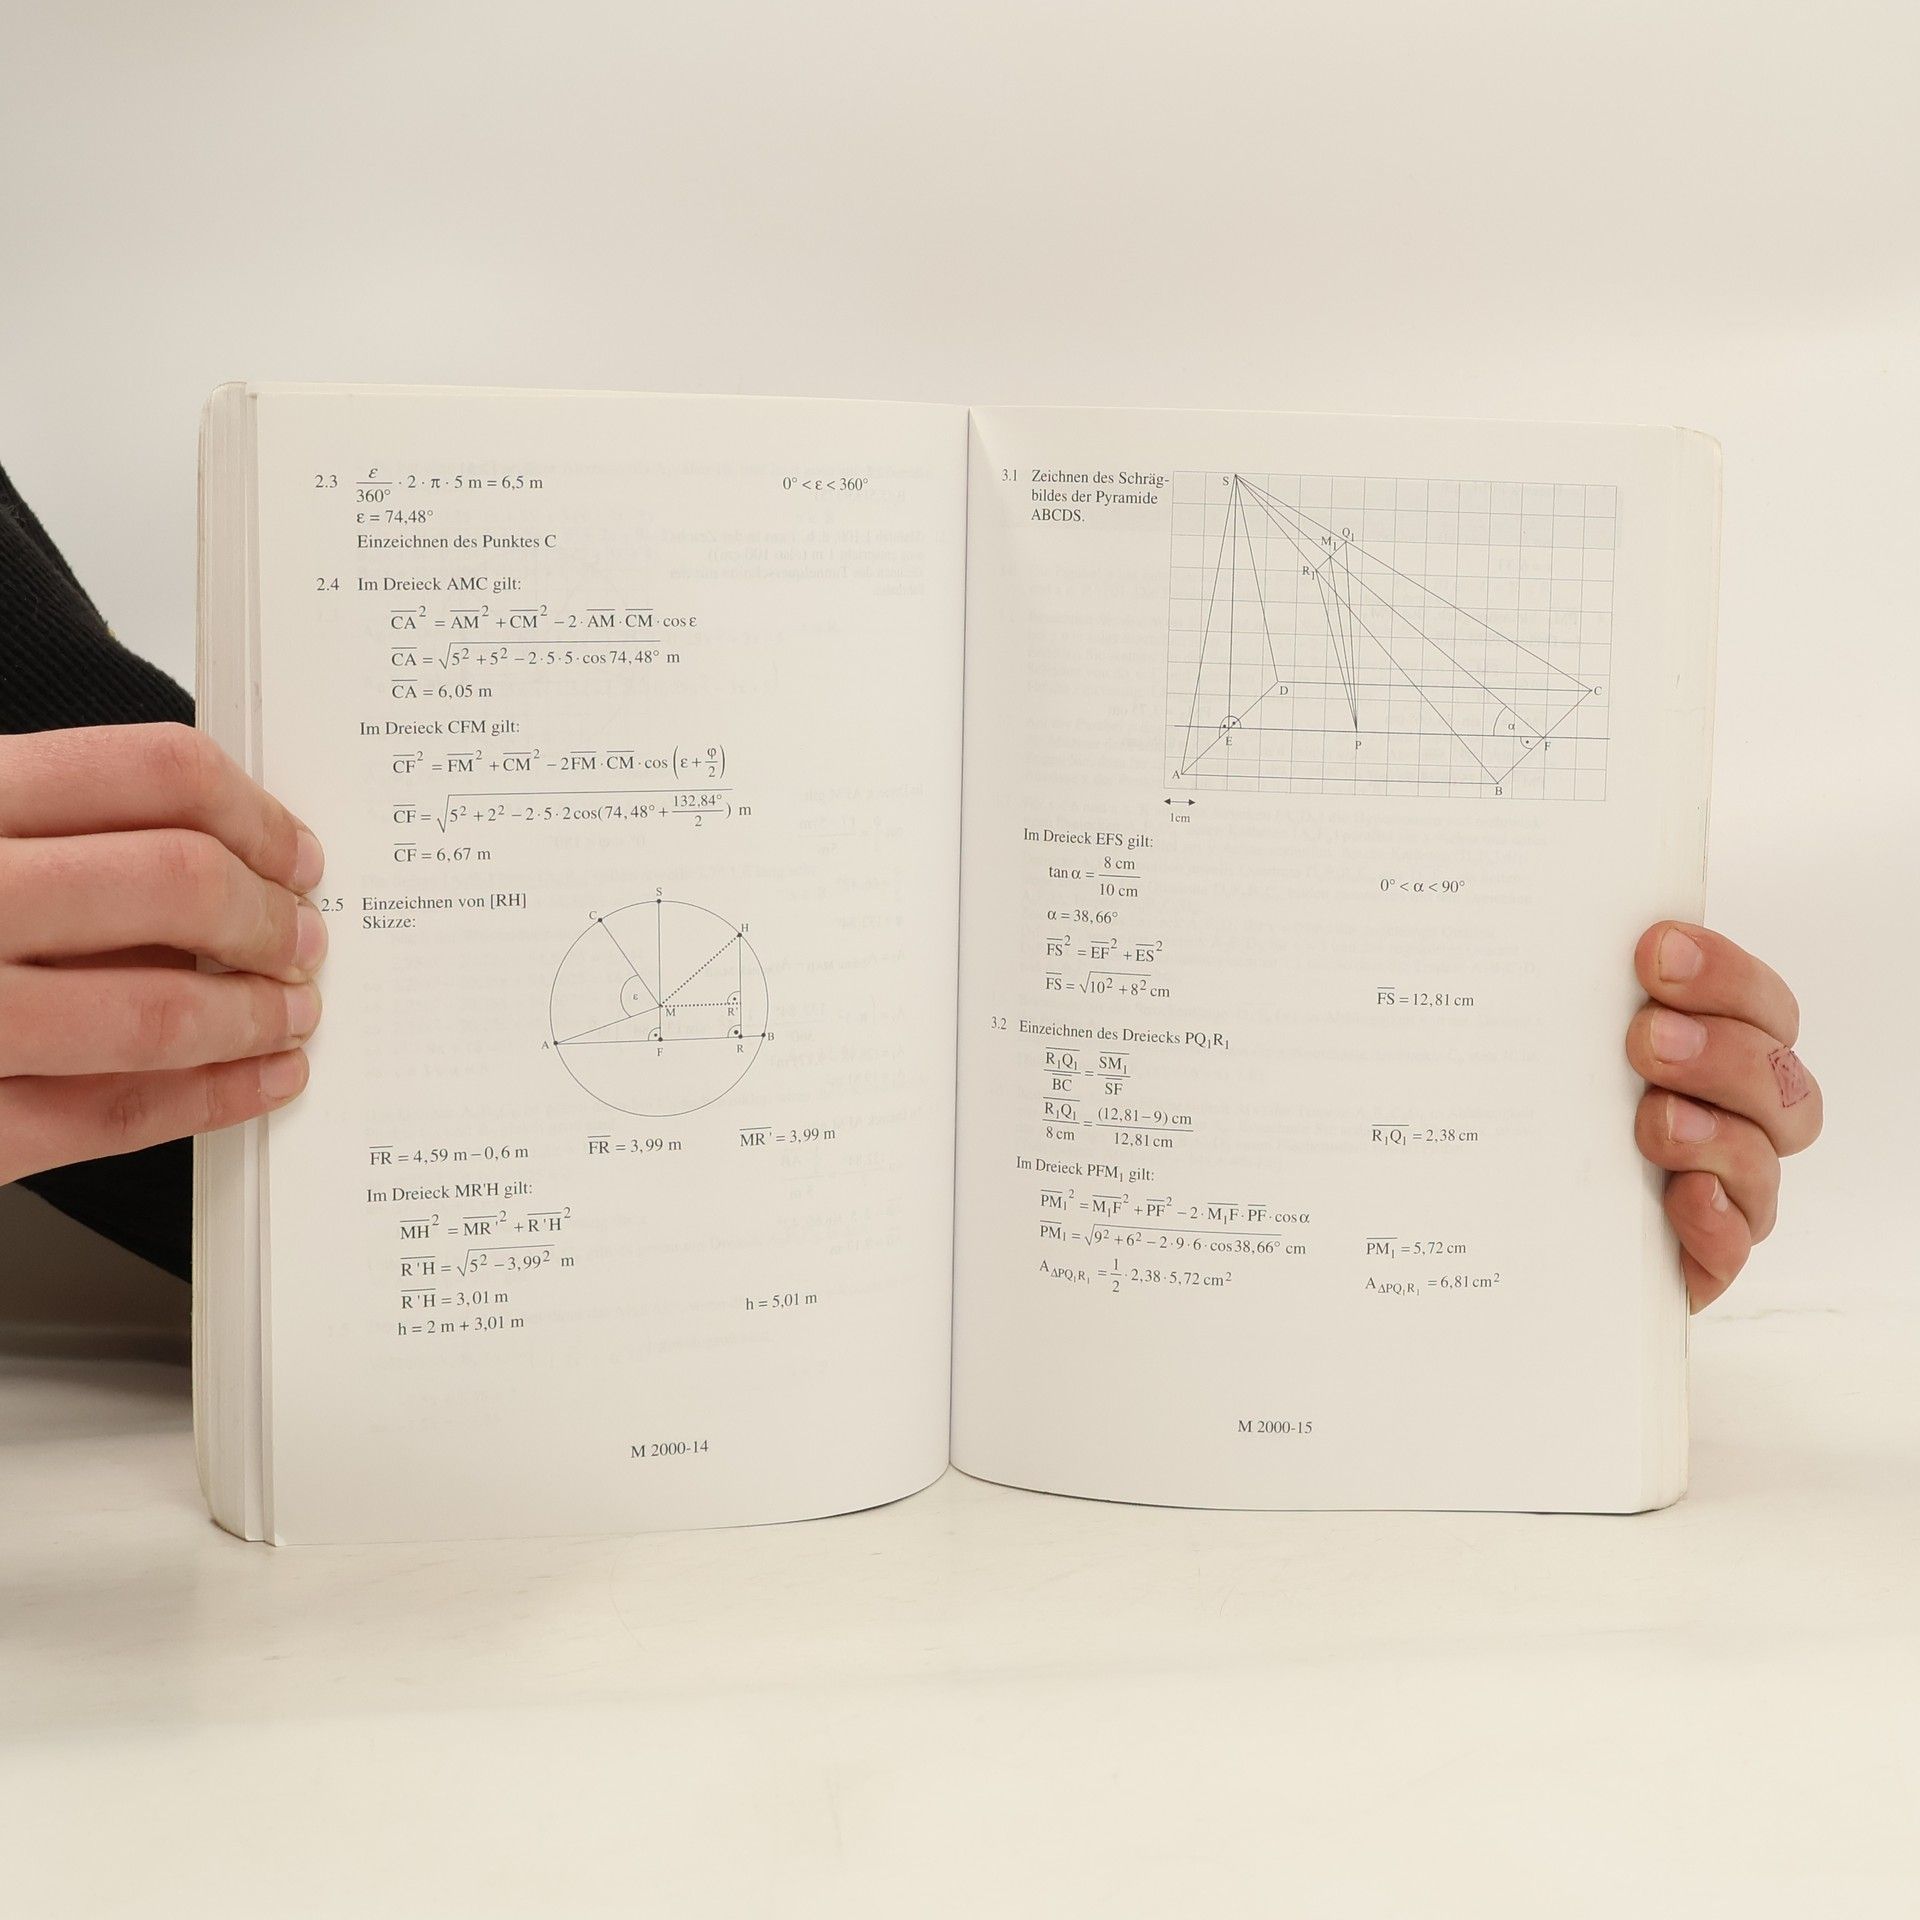 2.3 ε/360° · 2 · π · 5 m = 6,5 m 0° < ε < 360°
ε = 74,48°
Einzeichnen des Punktes C
2.4 Im Dreieck AMC gilt:
CA² = AM² + CM² – 2 · AM · CM · cos ε
CA = √(5² + 5² – 2 · 5 · 5 · cos 74,48°) m
CA = 6,05 m
Im Dreieck CFM gilt:
CF² = FM² + CM² – 2 FM · CM · cos (ε + φ/2)
CF = √(5² + 2² – 2 · 5 · 2 cos(74,48° + 132,84°/2)) m
CF = 6,67 m
2.5 Einzeichnen von [RH]
Skizze:
S
C
H
ε
M
R'
A
F
R
B
FR = 4,59 m – 0,6 m FR = 3,99 m MR' = 3,99 m
Im Dreieck MR'H gilt:
MH² = MR'² + R'H²
R'H = √(5² – 3,99²) m
R'H = 3,01 m
h = 2 m + 3,01 m h = 5,01 m
M 2000-14
3.1 Zeichnen des Schräg-
bildes der Pyramide
ABCDS.
S
Q₁
M₁
R₁
D
C
α
E
P
F
A
B
1cm
Im Dreieck EFS gilt:
tan α = 8 cm/10 cm 0° < α < 90°
α = 38,66°
FS² = EF² + ES²
FS = √(10² + 8²) cm FS = 12,81 cm
3.2 Einzeichnen des Dreiecks PQ₁R₁
R₁Q₁/BC = SM₁/SF
R₁Q₁/8 cm = (12,81 – 9) cm/12,81 cm R₁Q₁ = 2,38 cm
Im Dreieck PFM₁ gilt:
PM₁² = M₁F² + PF² – 2 · M₁F · PF · cos α
PM₁ = √(9² + 6² – 2 · 9 · 6 · cos 38,66°) cm PM₁ = 5,72 cm
A ΔPQ₁R₁ = 1/2 · 2,38 · 5,72 cm² A ΔPQ₁R₁ = 6,81 cm²
M 2000-15